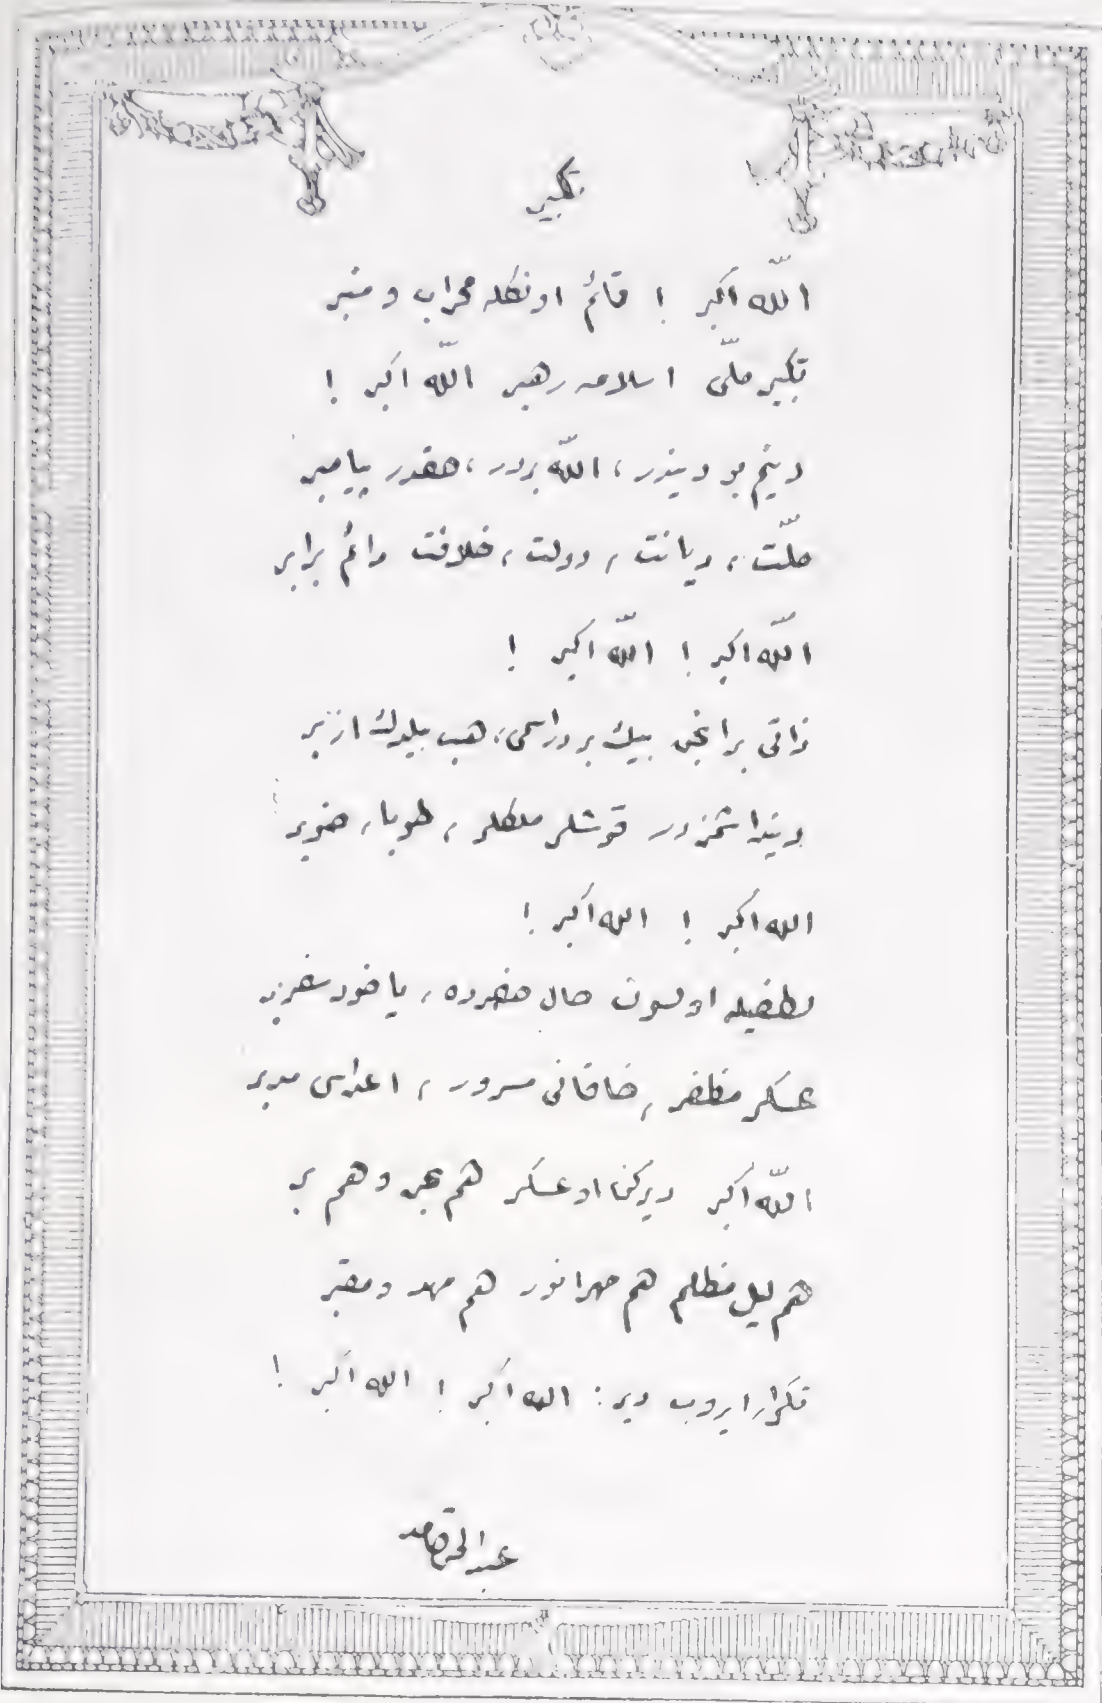 تكبير
اللّه اكبر ! قائم اونكله محراب و منبر
تكبير ملّی اسلامه رهبر اللّه اكبر !
دينم بو ديندر ، اللّه بردر ، حقدر پيامبر
ملّت ، ديانت ، دولت ، خلافت دائم برابر
اللّه اكبر ! اللّه اكبر !
ذاتی بر انجق بيك بر در اسمی ، هپ بيلدك از بر
ديندا شمزدر قوشلر ملكلر ، طوبا ،
الله اكبر ! الله اكبر !
لطفيله اولسون حال حضرده ، ياخود سفربر
عسكر مظفر ، خاقانی مسرور ، اعداسی مدبر
اللّه اكبر ديركن او عسكر هم بحر و هم بر
هم ليل مظلم هم مهر انور هم مهد و مقبر
تكرار ايدوب دير : الله اكبر ! الله اكبر !
عبدالحق حامد